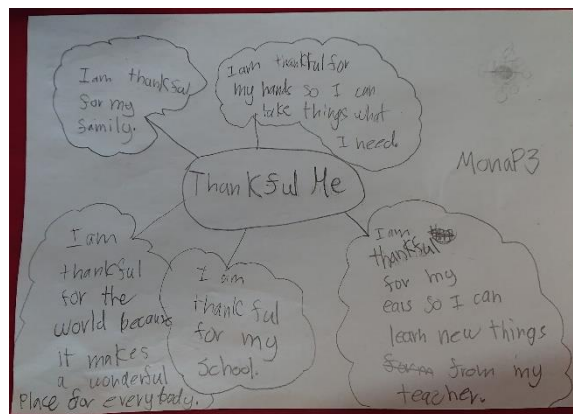 I am thankful
for my
family.
I am thankful for
my hands so I can
take things what
I need.
MonaP3
Thankful Me
I am
thankful
for the
world because
it makes
a wonderful
Place for everybody.
I am
thankful
for my
School.
I am
thankful
for my
ears so I can
learn new things
from my
teacher.